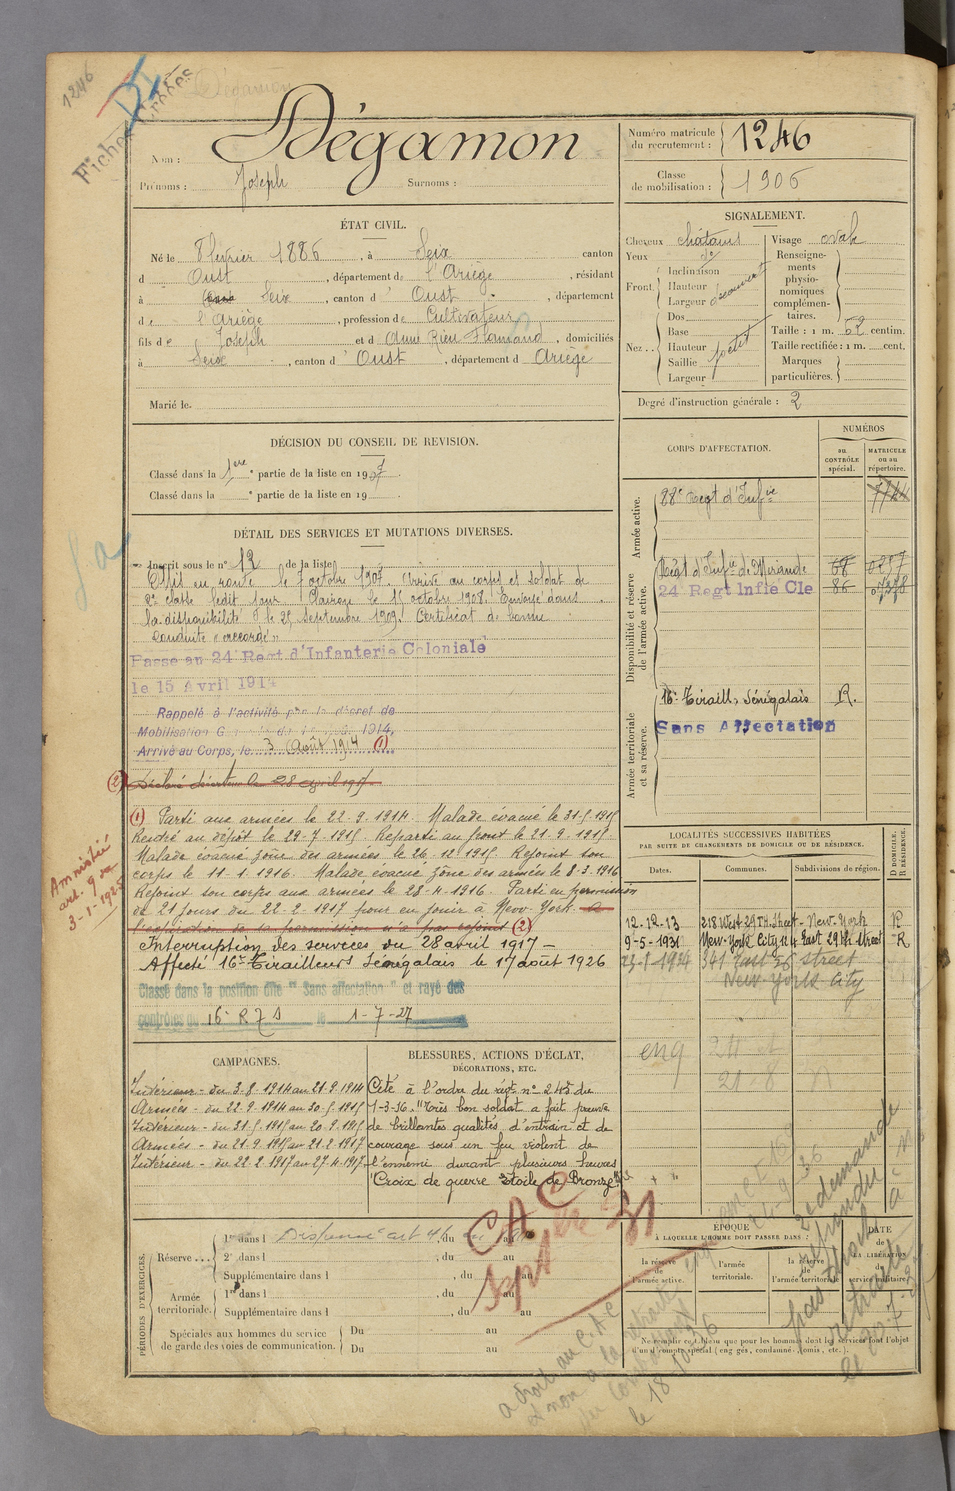 1246
Fiches
Nom : Dégamon
Prénoms : Joseph Surnoms :
Numéro matricule du recrutement : 1246
Classe de mobilisation : 1906
ÉTAT CIVIL.
Né le 8 février 1886, à Seix canton
d Oust, département de l'Ariège, résidant
à Seix, canton d' Oust, département
de l'Ariège, profession de Cultivateur
fils de Joseph et d Anné Rieu Flamand, domiciliés
à Seix, canton d' Oust, département d Ariège
Marié le.
SIGNALEMENT.
Cheveux châtains
Yeux do
Front. Inclinaison
Hauteur
Largeur découvert
Nez.. Dos
Base
Hauteur
Saillie petit
Largeur
Visage ovale
Renseignements physionomiques complémentaires.
Taille : 1 m. 62 centim.
Taille rectifiée : 1 m. cent.
Marques particulières.
Degré d'instruction générale : 2
DÉCISION DU CONSEIL DE REVISION.
Classé dans la 1ère partie de la liste en 1907.
Classé dans la e partie de la liste en 19 .
DÉTAIL DES SERVICES ET MUTATIONS DIVERSES.
Inscrit sous le n° 12 de la liste
en route le 7 octobre 1907. Arrivé au corps et soldat de
2e classe ledit jour. Clairon le 15 octobre 1908. Envoyé dans
la disponibilité le 25 septembre 1909. Certificat de bonne
conduite "accordé"
Passé au 24e Regt d'Infanterie Coloniale
le 15 Avril 1914
Rappelé à l'activité par le décret de
Mobilisation G 1914.
Arrivé au Corps, le 3 Août 1914 (1)
(2) Déclaré déserteur le 28 april 1917
(1) Parti aux armées le 22.9.1914. Malade évacué le 31-5-1915
Rentré au dépôt le 29-7-1915. Reparti au front le 21.9.1915
Malade évacué zône des armées le 26.12.1915. Rejoint son
corps le 11-1-1916. Malade évacué zone des armées le 8-3-1916
Rejoint son corps aux armées le 28-4-1916. Parti en permission
de 21 jours du 22-2-1917 pour en jouir à New-York. A
l'expiration de sa permission n'a pas rejoint (2)
Interruption des services du 28 avril 1917 -
Affecté 16e Tirailleurs Sénégalais le 17 août 1926
Classé dans la position dite "Sans affectation" et rayé des
contrôles du 16e R T S le 1-7-27
Amnistié
art. 9
3-1-1925
CORPS D'AFFECTATION.
NUMÉROS
au CONTRÔLE spécial.
MATRICULE ou au répertoire.
Armée active.
88e Regt d'Infie
Disponibilité et réserve de l'armée active.
Regt d'Infie de Mirande 68
24 Regt Infie Cle 86
Armée territoriale et sa réserve.
16e Tiraill. Sénégalais R.
Sans Affectation
LOCALITÉS SUCCESSIVES HABITÉES
PAR SUITE DE CHANGEMENTS DE DOMICILE OU DE RÉSIDENCE.
Dates. Communes. Subdivisions de région. D DOMICILE. R RÉSIDENCE.
12-12-13 218 West 29TH. Street - New-York R
9-5-1931 New-York City 114 East 29th Street R
1934 341 East 56 Street
New-York City
CAMPAGNES.
Intérieur - du 3-8-1914 au 21-9-1914
Armées - du 22-9-1914 au 30-5-1915
Intérieur - du 31-5-1915 au 20-9-1915
Armées - du 21-9-1915 au 21-2-1917
Intérieur - du 22-2-1917 au 27-4-1917
BLESSURES, ACTIONS D'ÉCLAT, DÉCORATIONS, ETC.
Cité à l'ordre du régt n° 245 du
1-3-16. "Très bon soldat a fait preuve
de brillantes qualités d'entrain et de
courage sous un feu violent de
l'ennemi durant plusieurs heures
Croix de guerre étoile de Bronze"
PÉRIODES D'EXERCICES.
Réserve...
1re dans l , du au
2e dans l , du au
Supplémentaire dans l , du au
Armée territoriale.
1re dans l , du au
Supplémentaire dans l , du au
Spéciales aux hommes du service de garde des voies de communication.
Du au
Du au
CAC
Sept 31
ÉPOQUE
À LAQUELLE L'HOMME DOIT PASSER DANS :
la réserve de l'armée active.
l'armée territoriale.
la réserve de l'armée territoriale
DATE de LA LIBÉRATION du service militaire
Ne remplir ce tableau que pour les hommes dont les services font l'objet
d'un compte spécial (engagés, condamnés, omis, etc.).
2e demande
répondu
pas droit à
retraite
a droit au C.A.C
et non à la retraite
du combattant
le 18